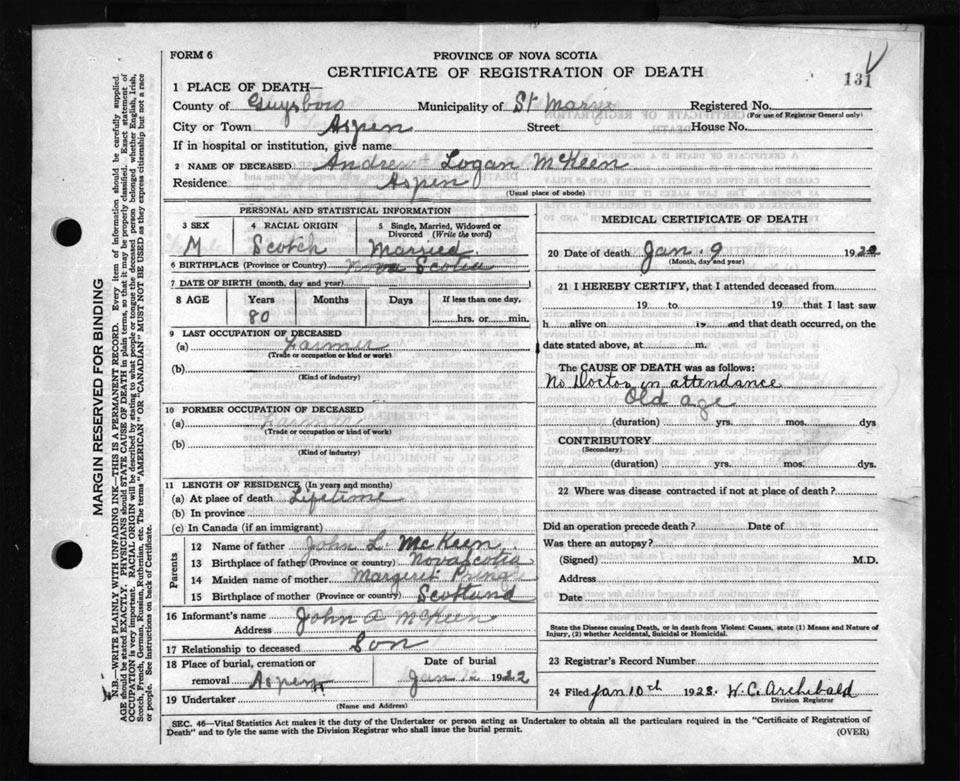 FORM 6
PROVINCE OF NOVA SCOTIA
CERTIFICATE OF REGISTRATION OF DEATH
131
1 PLACE OF DEATH—
County of Guysboro Municipality of St Marys Registered No.
(For use of Registrar General only)
City or Town Aspen Street House No.
If in hospital or institution, give name
2 NAME OF DECEASED Andrew Logan McKeen
Residence Aspen
(Usual place of abode)
PERSONAL AND STATISTICAL INFORMATION
3 SEX 4 RACIAL ORIGIN 5 Single, Married, Widowed or Divorced (Write the word)
M Scotch Married
6 BIRTHPLACE (Province or Country) Nova Scotia
7 DATE OF BIRTH (month, day and year)
8 AGE Years Months Days If less than one day,
80 hrs. or min.
9 LAST OCCUPATION OF DECEASED
(a) Farmer
(Trade or occupation or kind of work)
(b)
(Kind of industry)
10 FORMER OCCUPATION OF DECEASED
(a) Farmer
(Trade or occupation or kind of work)
(b)
(Kind of industry)
11 LENGTH OF RESIDENCE (In years and months)
(a) At place of death Lifetime
(b) In province
(c) In Canada (if an immigrant)
Parents
12 Name of father John L McKeen
13 Birthplace of father (Province or country) Nova Scotia
14 Maiden name of mother Margaret
15 Birthplace of mother (Province or country) Scotland
16 Informant's name John A McKeen
Address
17 Relationship to deceased Son
18 Place of burial, cremation or Date of burial
removal Aspen Jan 12 1922
19 Undertaker
(Name and Address)
MEDICAL CERTIFICATE OF DEATH
20 Date of death Jan. 9 19
(Month, day and year)
21 I HEREBY CERTIFY, that I attended deceased from
19 to 19 that I last saw
h alive on 19 and that death occurred, on the
date stated above, at m.
The CAUSE OF DEATH was as follows:
No Doctor in attendance
Old age
(duration) yrs. mos. dys
CONTRIBUTORY
(Secondary)
(duration) yrs. mos. dys.
22 Where was disease contracted if not at place of death?
Did an operation precede death? Date of
Was there an autopsy?
(Signed) M.D.
Address
Date
State the Disease causing Death, or in death from Violent Causes, state (1) Means and Nature of
Injury, (2) whether Accidental, Suicidal or Homicidal.
23 Registrar's Record Number
24 Filed Jan 10th 1928. W.C. Archibald
Division Registrar
SEC. 46—Vital Statistics Act makes it the duty of the Undertaker or person acting as Undertaker to obtain all the particulars required in the "Certificate of Registration of
Death" and to fyle the same with the Division Registrar who shall issue the burial permit.
(OVER)
MARGIN RESERVED FOR BINDING
N.B.—WRITE PLAINLY WITH UNFADING INK—THIS IS A PERMANENT RECORD. Every item of information should be carefully supplied.
AGE should be stated EXACTLY. PHYSICIANS should STATE CAUSE OF DEATH in plain terms, so that it may be properly classified. Exact statement of
OCCUPATION is very important. RACIAL ORIGIN will be described by stating to what people or tongue the deceased person belonged whether English, Irish,
Scotch, French, German, Russian, Ruthenian, etc. The terms "AMERICAN" OR "CANADIAN" MUST NOT BE USED as they express citizenship but not a race
or people. See instructions on back of Certificate.